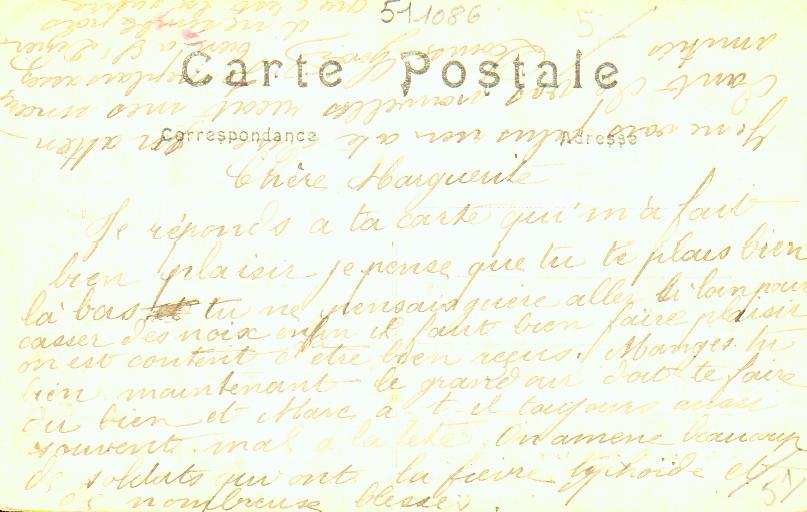 511086
Carte Postale
Correspondance
Adresse
Chère Marguerite
Je réponds a ta carte qui m'a fait
bien plaisir je pense que tu te plais bien
là bas tu ne pensais guère aller si loin pour
casser des noix enfin il faut bien faire plaisir
on est content d'être bien reçus. Manges tu
bien maintenant le grand air doit te faire
du bien et Marc a t-il toujours aussi
souvent mal a la tête. On amène beaucoup
de soldats qui ont la fièvre typhoïde et
de nombreux blessés.
Je ne vois plus rien a te dire en atten
dant de vos nouvelles reçoit mes sincères
amitiés